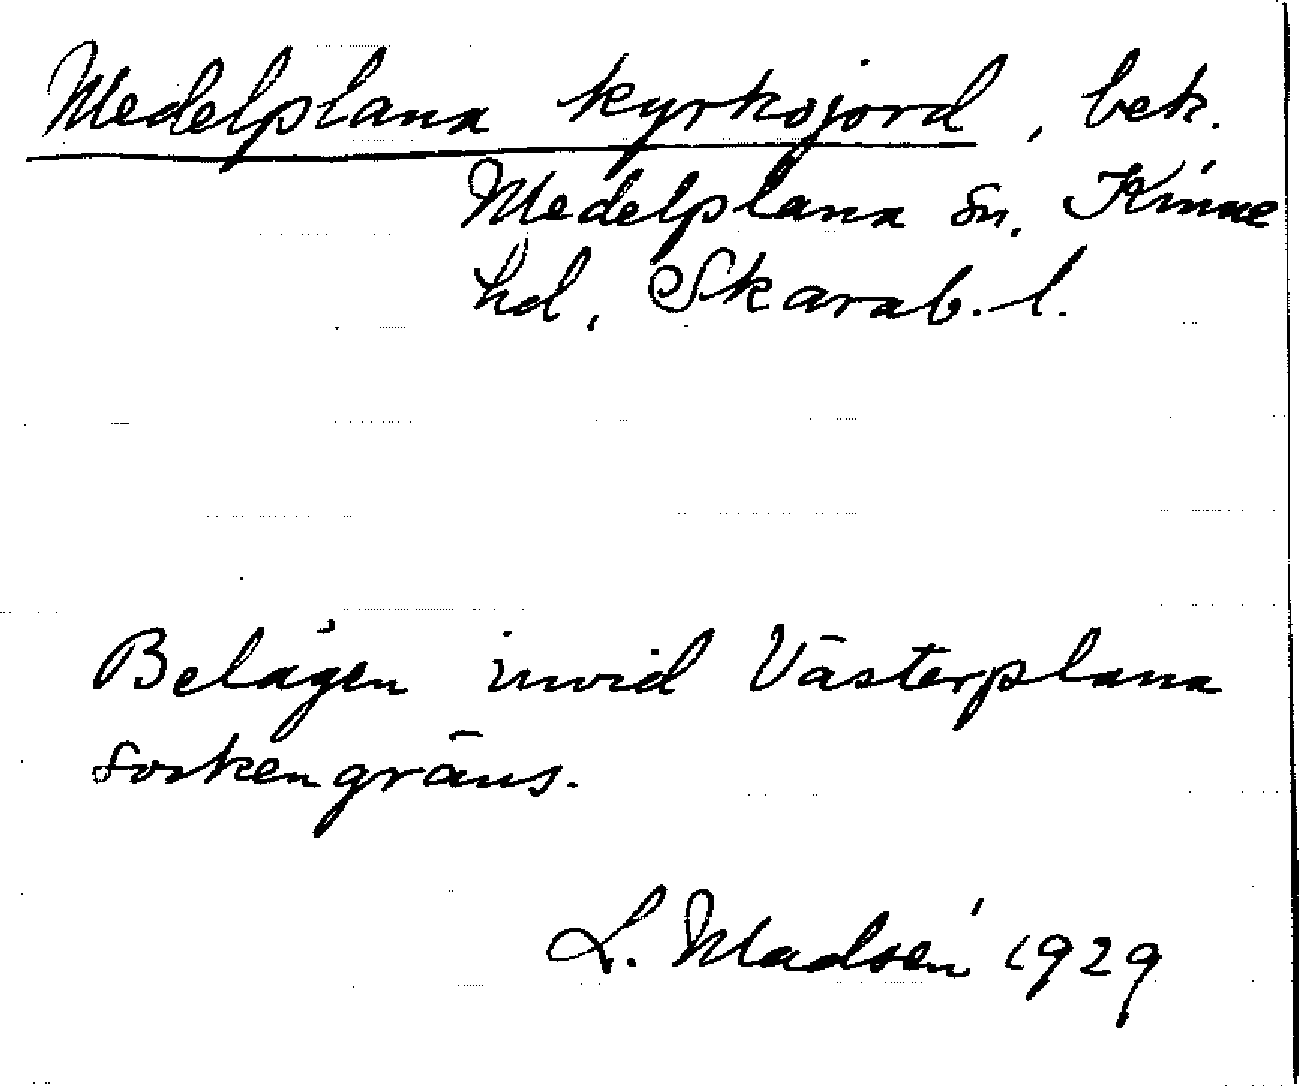 Medelplana kyrkojord, bek.
Medelplana sn, Kinne
hd, Skarab. l.
Belägen invid Västerplana
sockengräns.
L. Madsén 1929